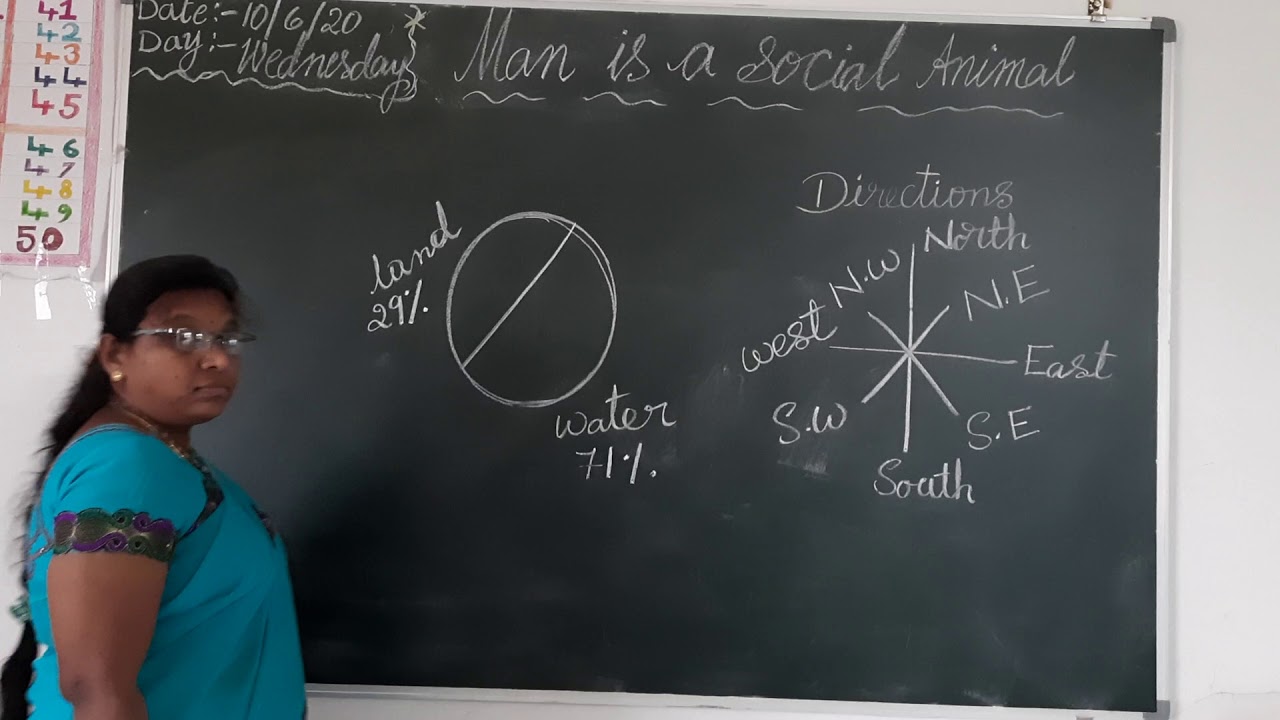 41
42
43
44
45
46
47
48
49
50
Date:- 10/6/20
Day:- Wednesday
Man is a social Animal
land
29%.
water
71%.
Directions
North
N.W
N.E
west
East
S.W
S.E
South